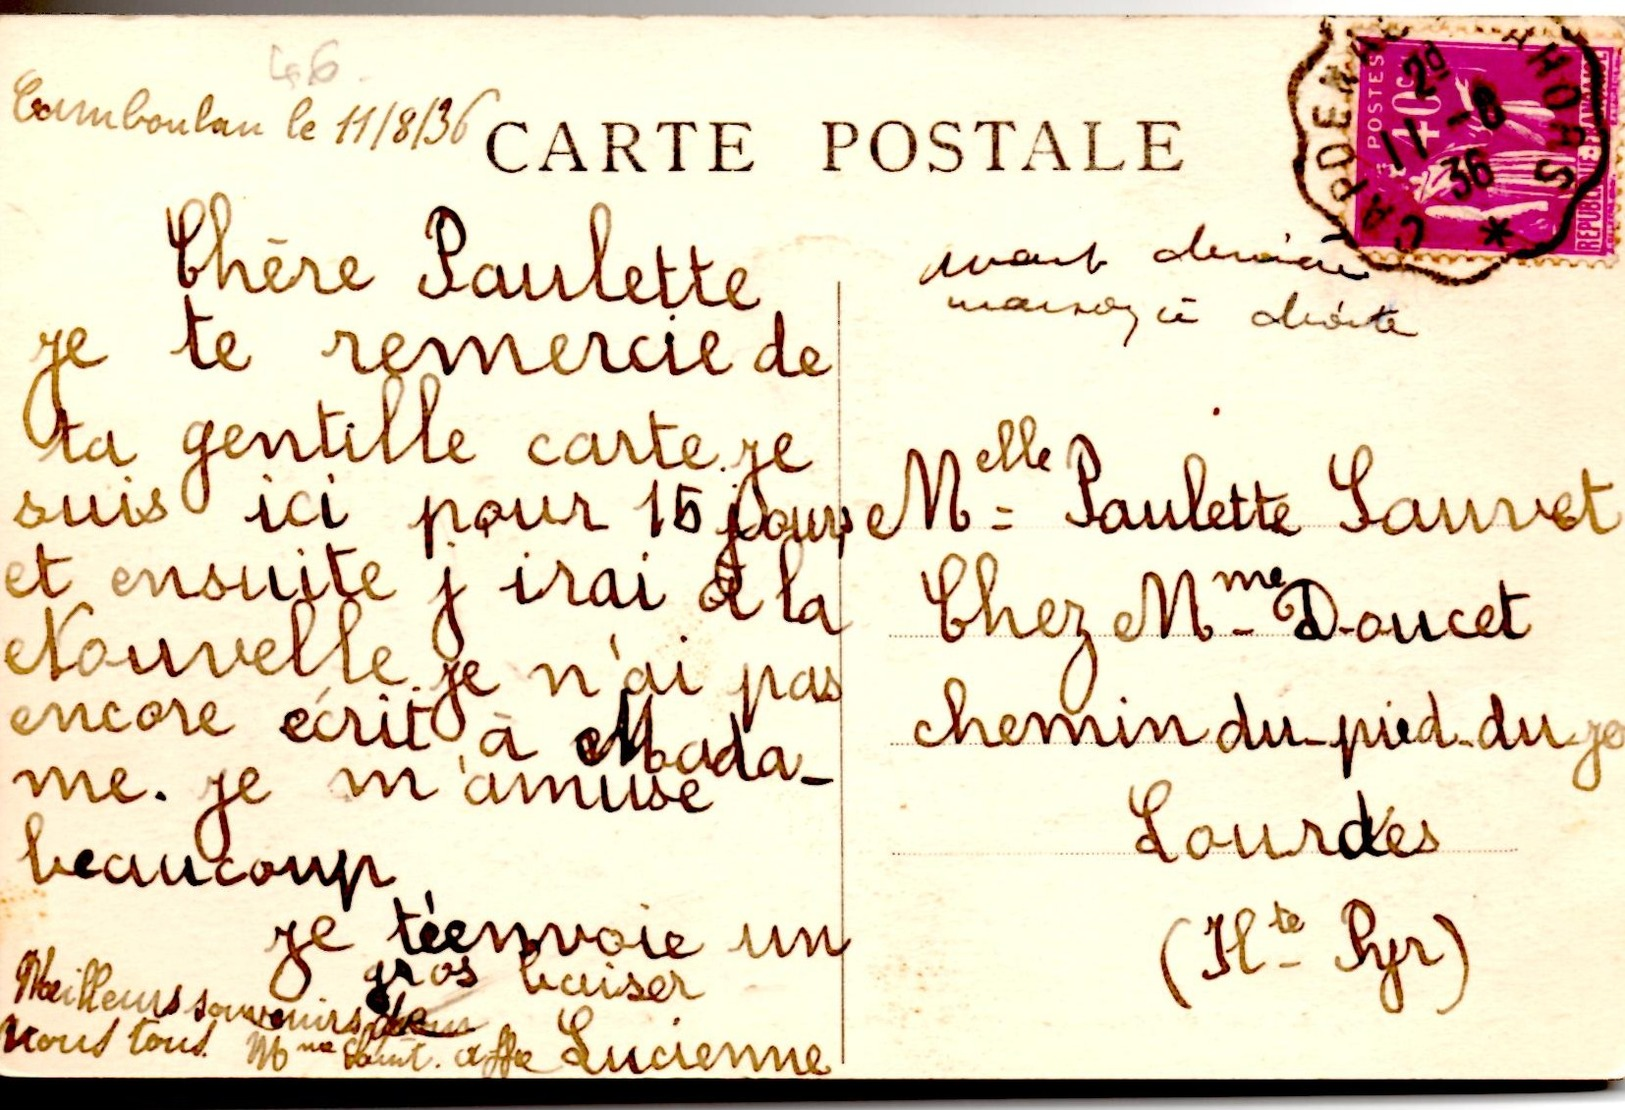 46
Camboulan le 11/8/36
CARTE POSTALE
CAPDENAC CAHORS
2d
11 -8
36
POSTES
40c
REPUBLIQUE FRANCAISE
Chère Paulette
je te remercie de
ta gentille carte. je
suis ici pour 15 jours
et ensuite j irai à la
Nouvelle. je n'ai pas
encore écrit à Mada-
me. je m'amuse
beaucoup
je t'envoie un
gros baiser
Lucienne
Meilleurs souvenirs de
nous tous. Mme
avant dernière
maison à droite
Melle Paulette Sauvet
Chez Mme Doucet
chemin du pied du
Lourdes
(Hte Pyr)